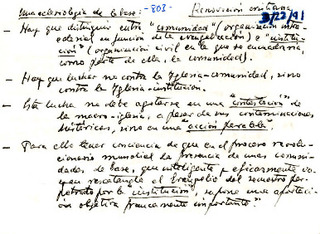 Una eclesiología de la base: -803- Renovación cristiana
3/23/91
— Hay que distinguir entre "comunidad" (organización
eclesial en función de la evangelización) e "institu-
ción" (organización civil en la que se encuadraría,
como parte de ella, la comunidad).
— Hay que luchar no contra la Iglesia-comunidad, sino
contra la Iglesia-institución.
— Esta lucha no debe agotarse en una "contestación" de
la macro-iglesia, a pesar de sus contaminaciones
históricas, sino en una "acción paralela"
— Para ello tener conciencia de que en el proceso revolu-
cionario mundial la presencia de unas comuni-
dades de base, que inteligente y eficazmente va-
yan rescatando el Evangelio del secuestro per-
petrado por la "institución", supone una aportación
objetiva francamente importante"